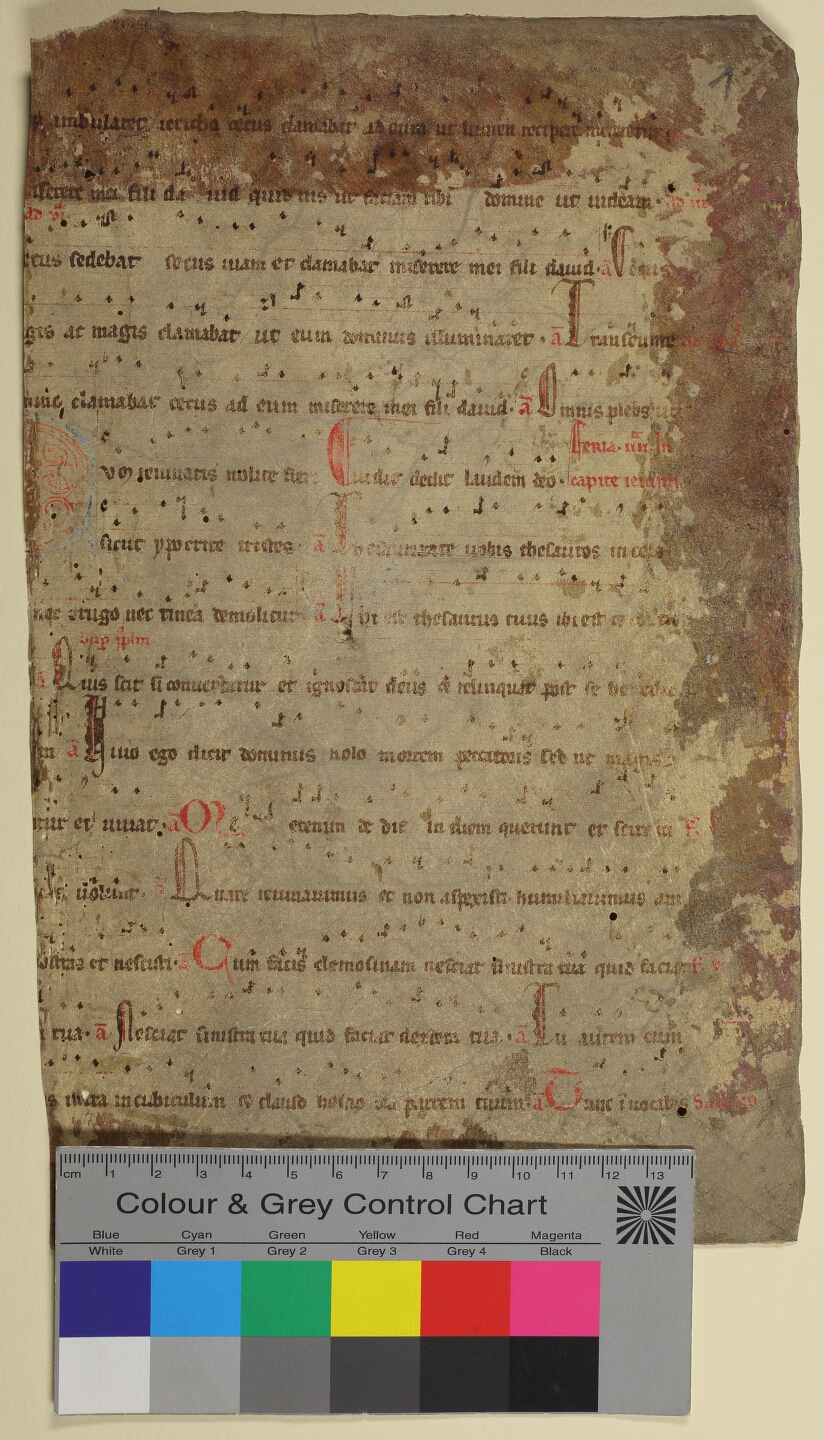 ambularet iericho cecus clamabat ad eum ut lumen recipere
iserere mei fili da uid quid uis ut faciam tibi domine ut uideam.
ad vi
ecus sedebat secus uiam et clamabat miserere mei fili dauid. a Cecus
gis ac magis clamabat ut eum dominus illuminaret. a Transeunte
clamabat cecus ad eum miserere mei fili dauid. a Omnis plebs ut
feria. iiii. In
ieiunatis nolite fieri uidit dedit laudem deo. capite ieiunii
sicut ypocrite tristes. a Thesaurizate uobis thesauros in celo
nec erugo nec tinea demolitur a Ubi est thesaurus tuus ibi est
sup ipm
Quis scit si conuertatur et ignoscat deus et relinquat post se
a Viuo ego dicit dominus nolo mortem peccatoris sed ut magis
tur et uiuat. a Me etenim de die in diem querunt et scire
uolunt. a Quare ieiunauimus et non aspexisti humiliauimus
nostras et nescisti. a Cum facis elemosinam nesciat sinistra tua quid faciat
tua. a Nesciat sinistra tua quid faciat dextera tua. a Tu autem cum
intra in cubiculum et clauso hostio ora patrem tuum. a Tunc inuocabis
1
cm 1 2 3 4 5 6 7 8 9 10 11 12 13
Colour & Grey Control Chart
Blue Cyan Green Yellow Red Magenta
White Grey 1 Grey 2 Grey 3 Grey 4 Black